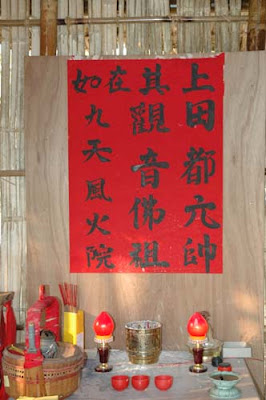 如在其上
田都元帥
觀音佛祖
九天風火院